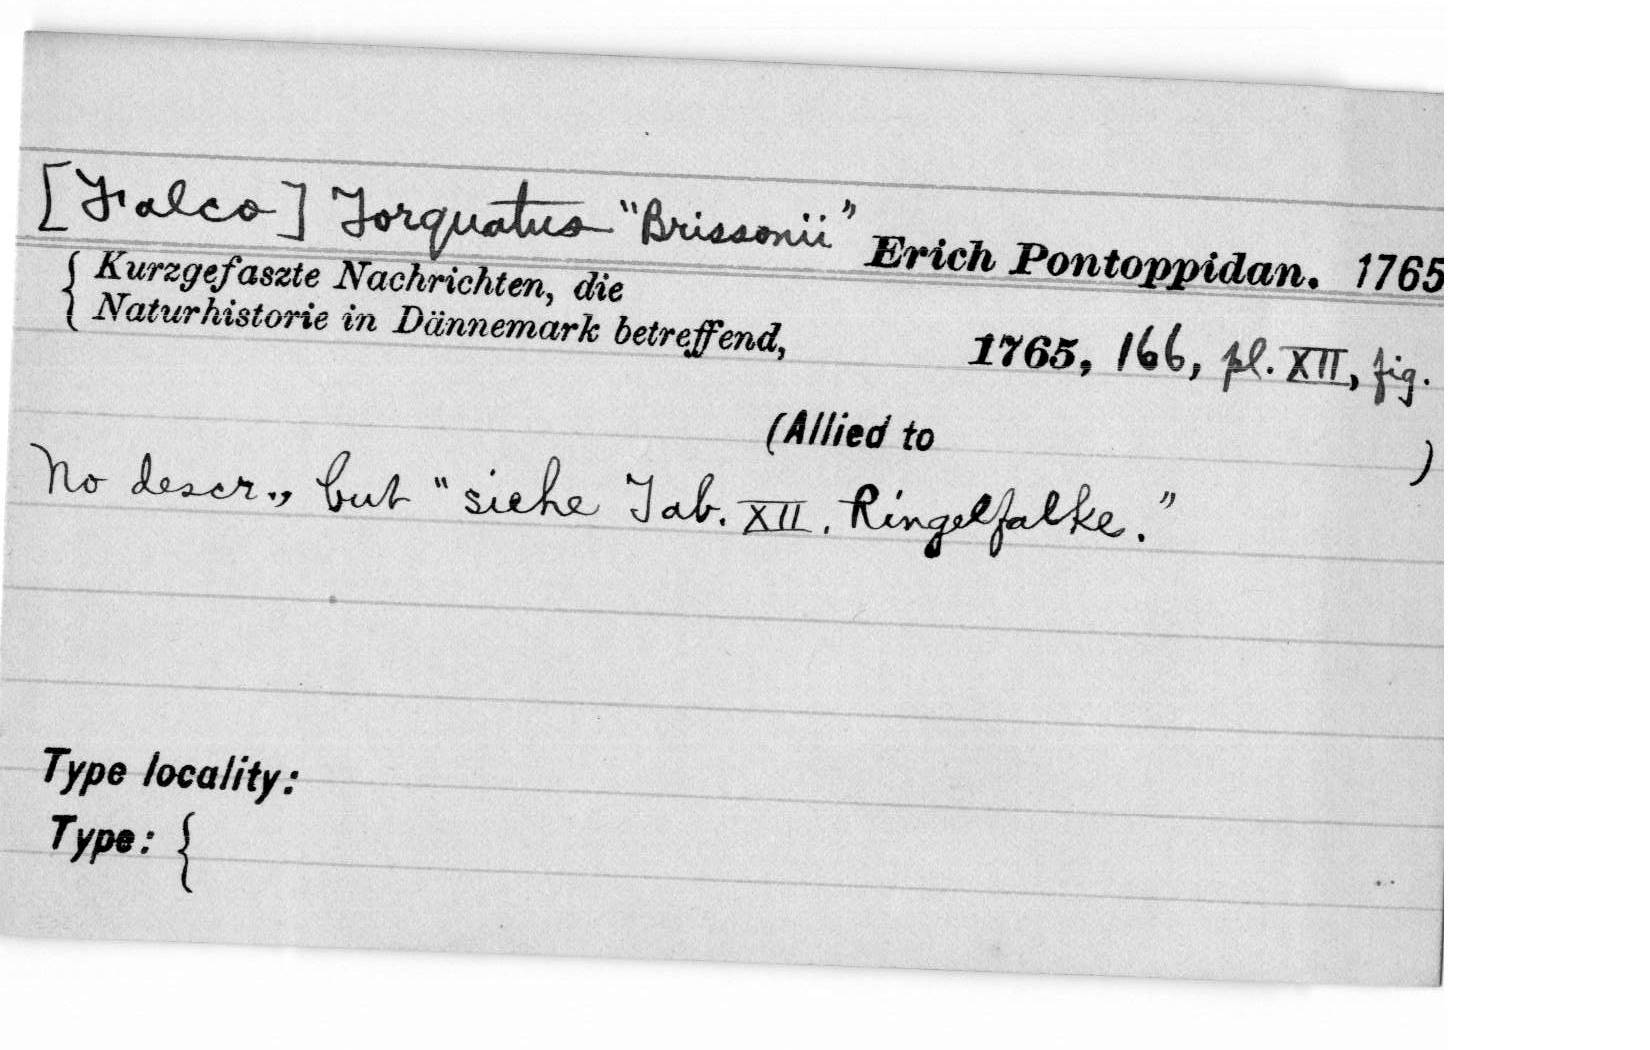 [Falco] Torquatus "Brissonii" Erich Pontoppidan. 1765
Kurzgefaszte Nachrichten, die
Naturhistorie in Dännemark betreffend, 1765, 166, pl. XII, fig.
(Allied to )
No descr., but "siehe Tab. XII. Ringelfalke."
Type locality:
Type: {